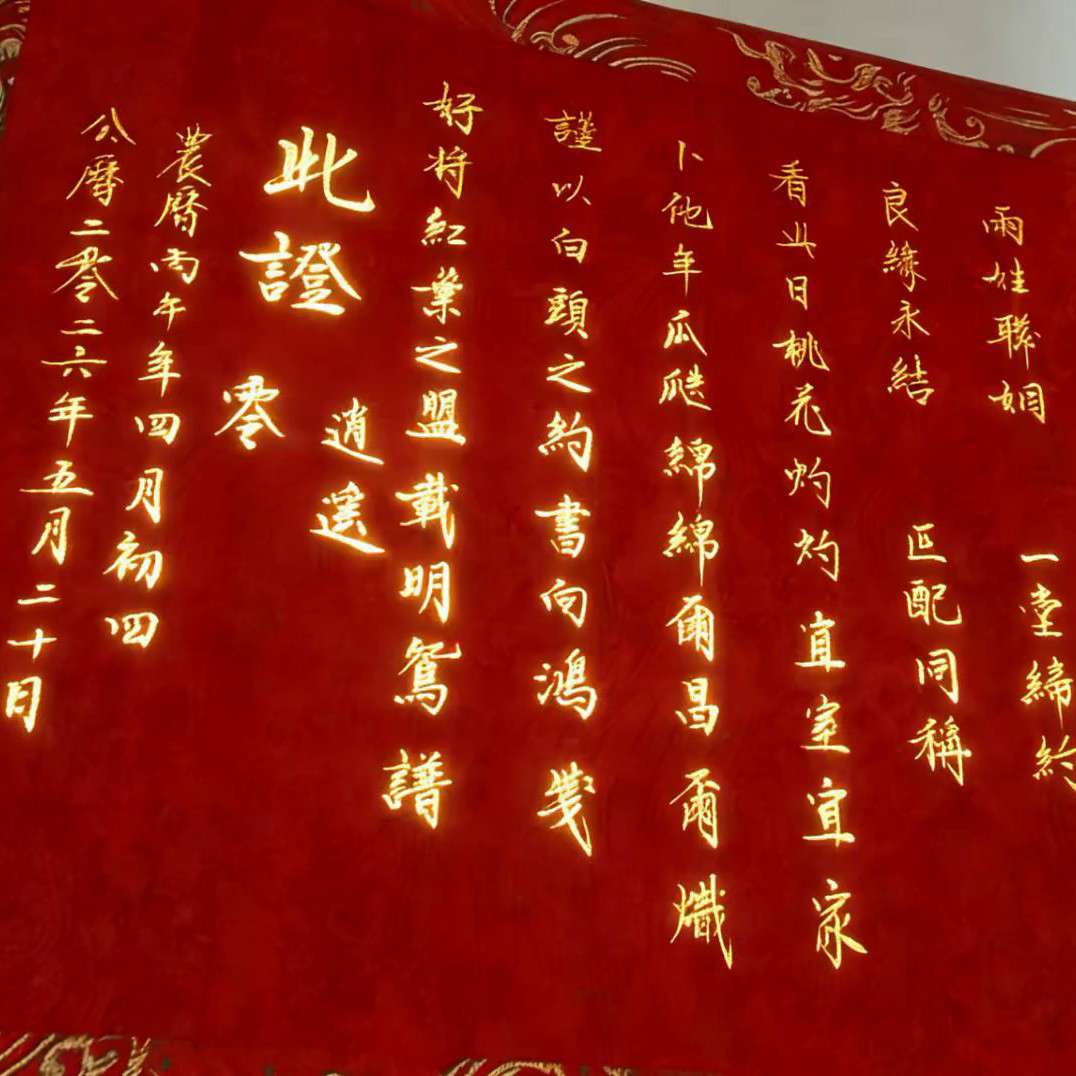 兩姓聯姻 一堂締約
良緣永結 匹配同稱
看此日桃花灼灼宜室宜家
卜他年瓜瓞綿綿爾昌爾熾
謹以白頭之約書向鴻箋
好將紅葉之盟載明鴛譜
此證
逍遙
零
農曆丙午年四月初四
公曆二零二六年五月二十日